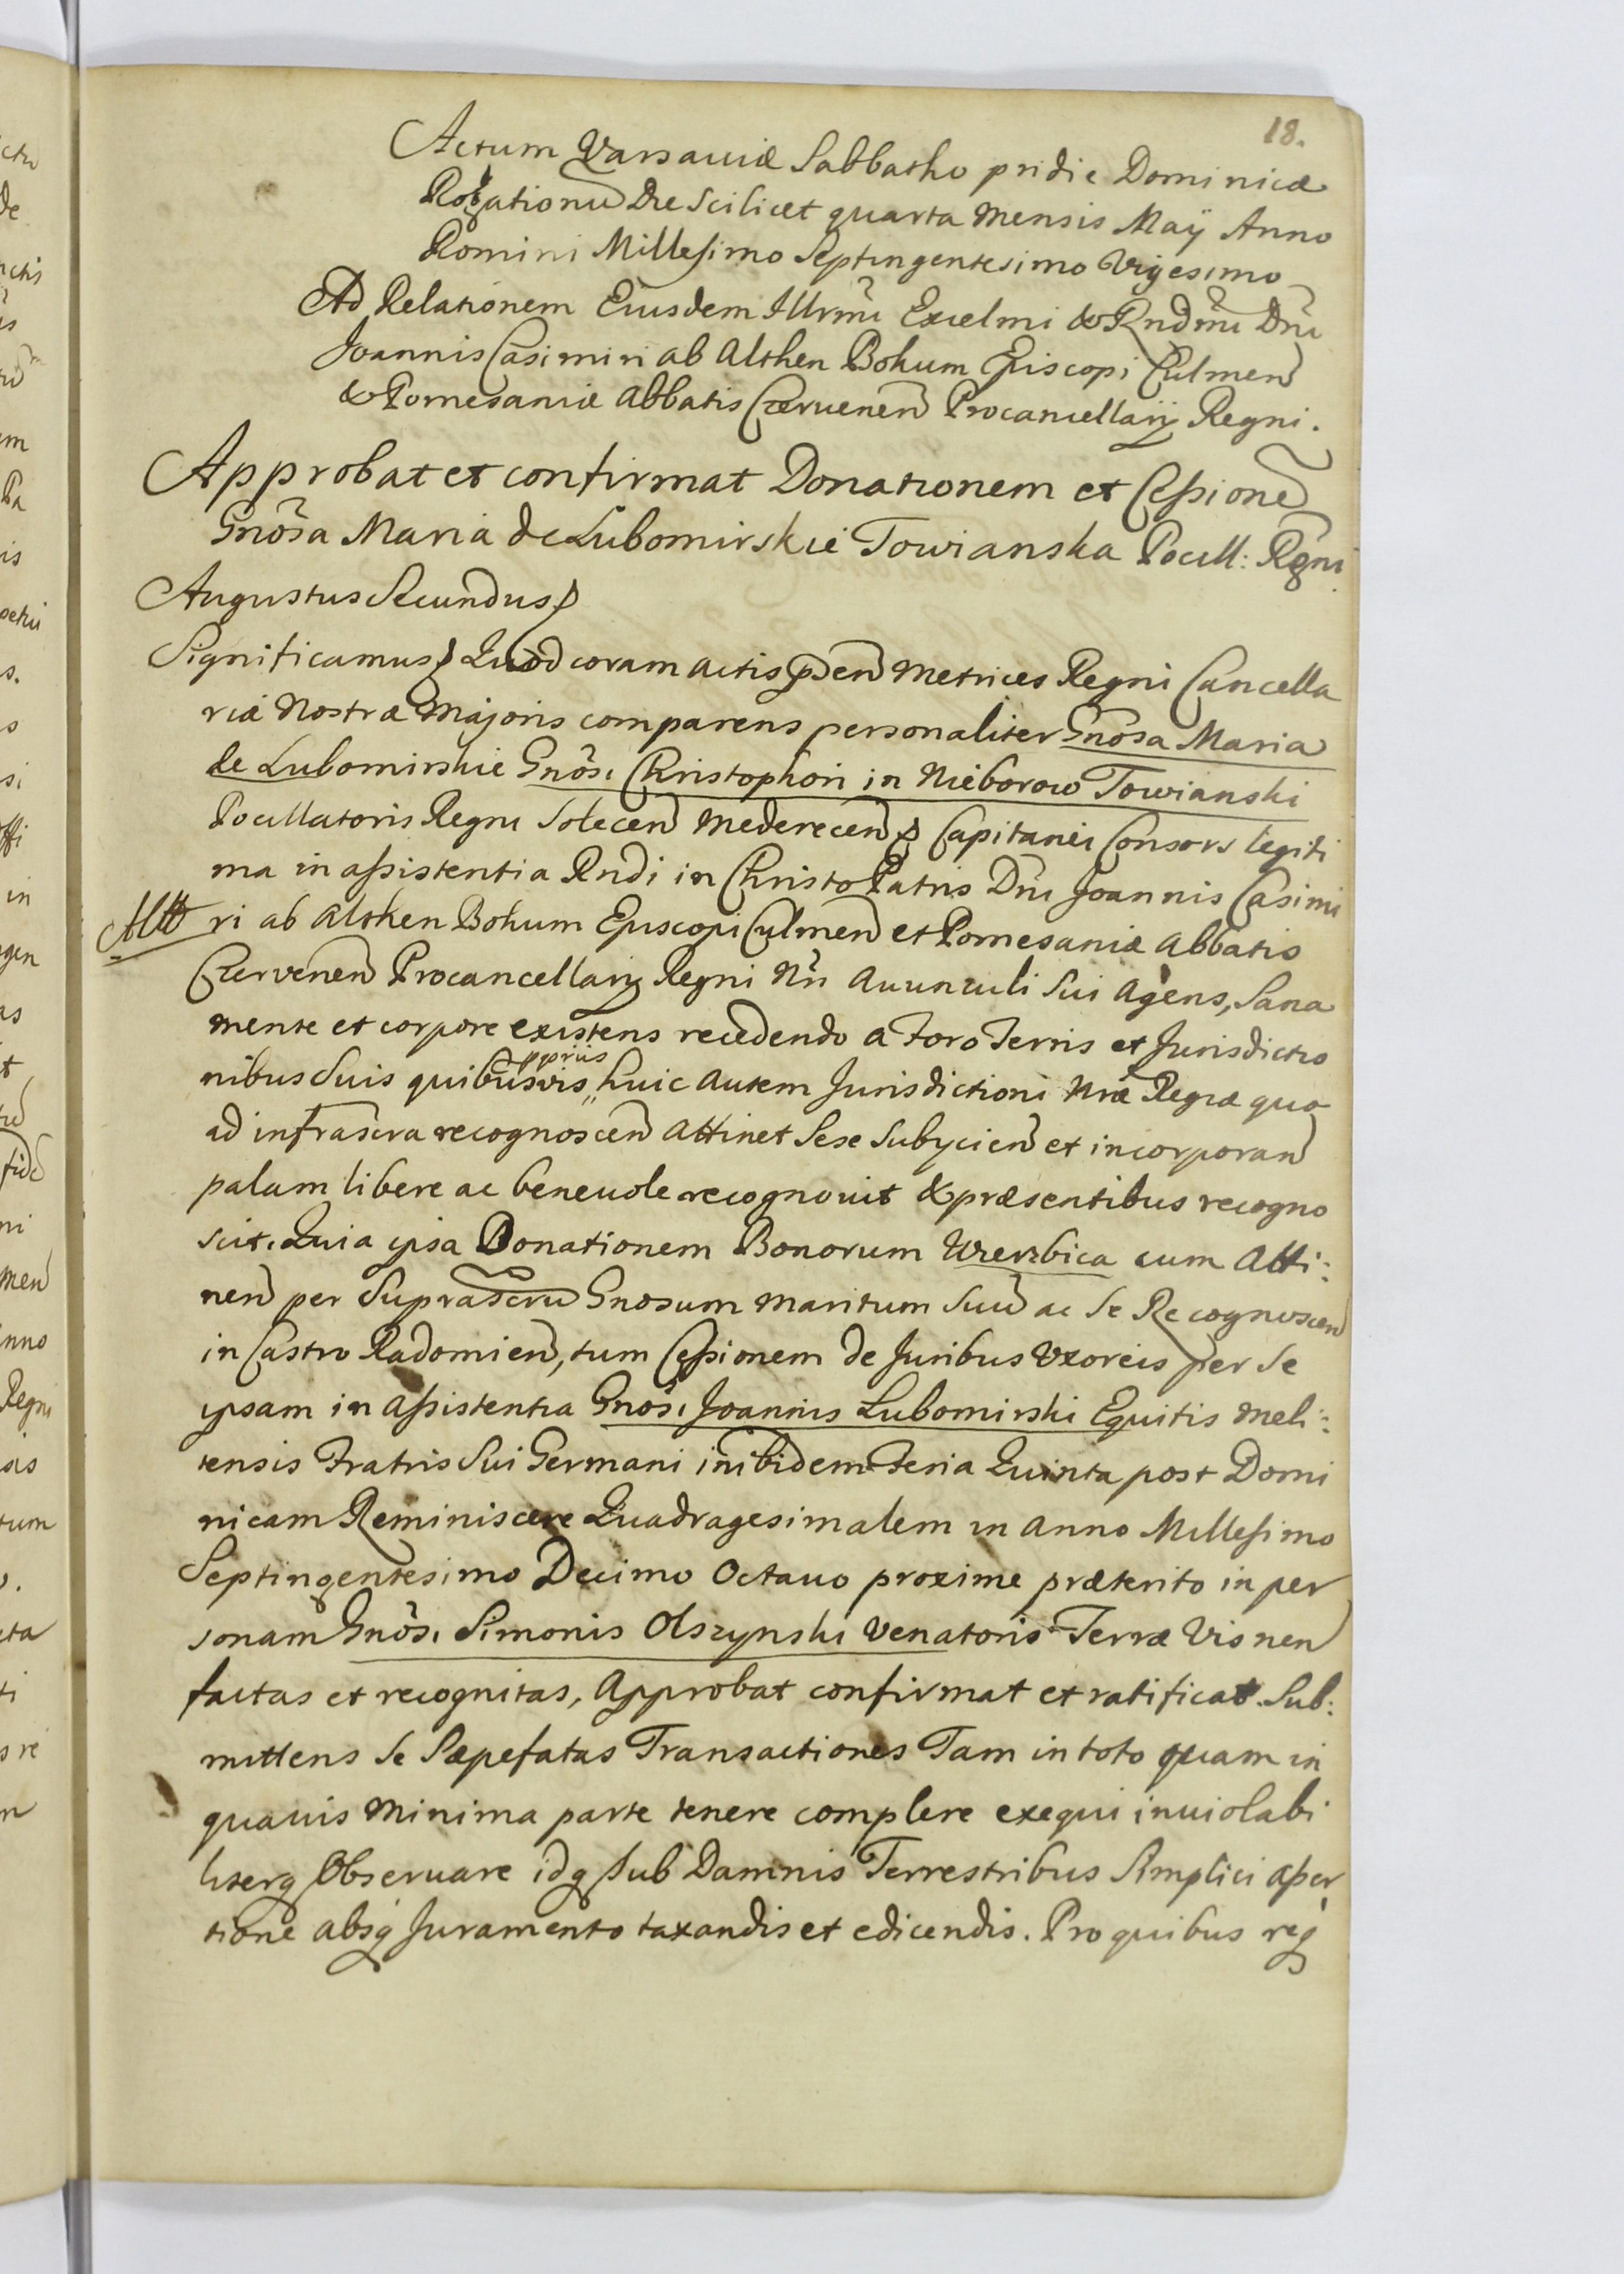 18.
Actum Varsaviæ Sabbatho pridie Dominicæ
Rogationũ Die Scilicet quarta Mensis Maÿ Anno
Domini Millesimo Septingentesimo Vigesimo
Ad Relationem Eiusdem Illrmi Excelmi & Rndmi Dni
Joannis Casimiri ab Alten Bokum Episcopi Culmen
& Pomesaniæ Abbatis Czervenen Procancellarij Regni.
Approbat et confirmat Donationem et Cessionē
Gnosa Maria de Lubomirskie Towianska Pocill: Regni
Augustus Secundus
Significamus Quod coram actis pden Metrices Regni Cancella
riæ Nostræ Majoris comparens personaliter Gnosa Maria
de Lubomirskie Gnosi Christophori in Nieborow Towianski
Pocillatoris Regni Solecen Mederecen Capitanei Consors legiti
ma in assistentia Rndi in Christo Patris Dni Joannis Casimi
ri ab Althen Bokum Episcopi Culmen et Pomesaniæ Abbatis
Czervenen Procancellarij Regni Nri Auunculi Sui Agens, Sana
mente et corpore existens recedendo a Foro Terris et Jurisdictio
ppriis
nibus Suis quibusvis huic Autem Jurisdictioni Nræ Regiæ quo
ad infrascra recognoscen Attinet Sese Subycien et incorporan
palam libere ac beneuole recognouit & præsentibus recogno
scit. Quia ipsa Donationem Bonorum Wierzbica cum Atti:
nen per Suprascrũ Gnosum Maritum Suũ ac Se Recognoscen
in Castro Radomien, tum Cessionem de Juribus Vxoreis per Se
ipsam in Assistentia Gnosi Joannis Lubomirski Equitis Meli:
tensis Fratris Sui Germani inibidem Feria Quinta post Domi
nicam Reminiscere Quadragesimalem in Anno Millesimo
Septingentesimo Decimo Octauo proxime præterito in per
sonam Gnosi Simonis Olszynski Venatoris Terræ Visnen
factas et recognitas, Approbat confirmat et ratificat. Sub:
mittens Se Sæpefatas Transactiones Tam in toto quam in
quauis Minima parte tenere complere exequi inuiolabi
literq Observare idq sub Damnis Terrestribus Simplici asser
tione absq Juramento taxandis et edicendis. Pro quibus req